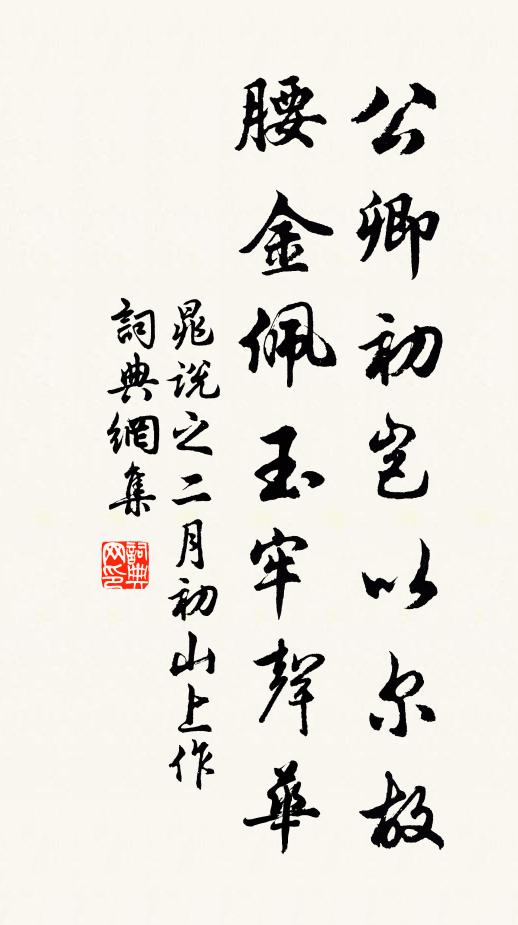 公卿初岂以尔故
腰金佩玉牢聲華
晁说之二月初山上作
詞典網集
詞典网印